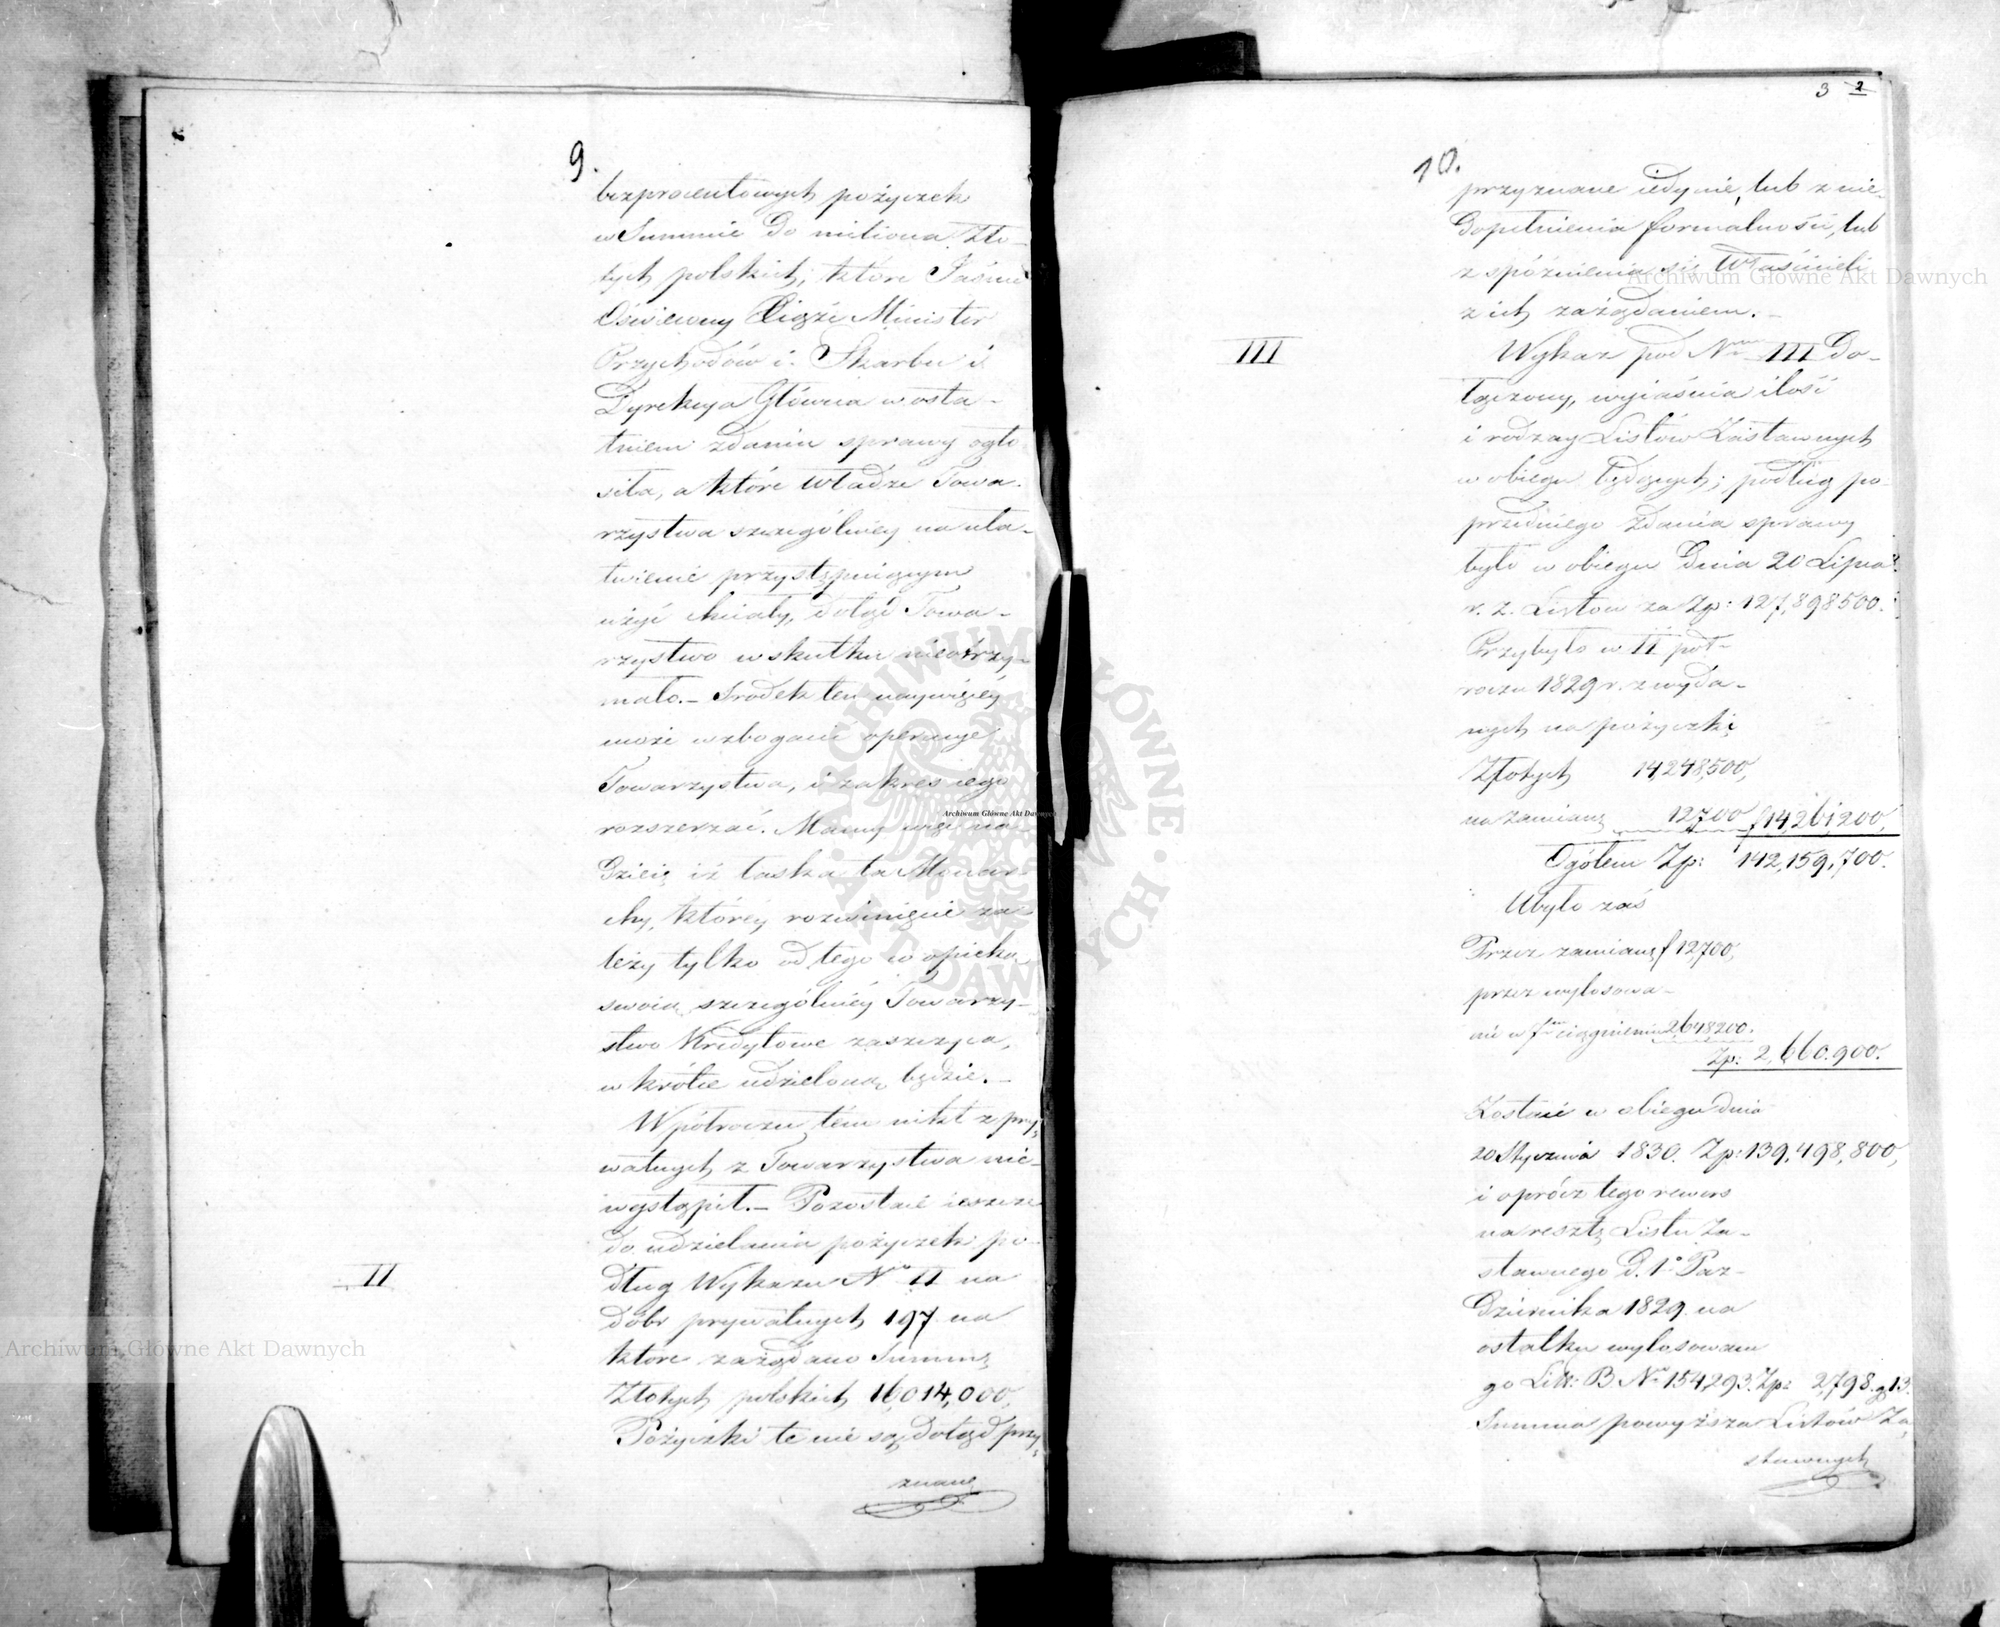 9.
bezprocentowych pożyczek
w Summie do miliona Zło-
tych polskich, które Jaśnie
Oświecony Xiąże Minister
Przychodów i Skarbu i
Dyrekcya Główna w osta-
tniem zdaniu sprawy ogło
siła, a które Władze Towa-
rzystwa szczególniey na uła-
twienie przystępuiącym
użyć chciały, dotąd Towa-
rzystwo w skutku nieotrzy-
mało. – Srodek ten naywięcéy
może wzbogacić operacye
Towarzystwa, i zakres iego
rozszerzać. Mamy więc na-
dzieię iż łaska ta Monar-
chy, któréy rozwinięcie za-
leży tylko od tego w opiekę
swoią szczególnéy Towarzy-
stwo Kredytowe zaszczyca,
w krótce udzieloną będzie. –
W półroczu tém nikt z pry-
watnych z Towarzystwa nie-
wystąpił. – Pozostaie ieszcze
do udzielania pożyczek po-
II
dług Wykazu Nro II na
dóbr prywatnych 197 na
które zażądano Summę
Złotych polskich 16,014,000,
Pożyczki te nie są dotąd przy-
znane
3 2
10.
przyznane iedynie, lub z nie-
dopełnienia formalności, lub
z spóźnienia się Właścicieli
z ich zażądaniem. –
III
Wykaz pod Nrem III do-
łączony, wyiaśnia ilość
i rodzay Listów Zastawnych
w obiegu będących; podług po-
przedniego zdania sprawy
było w obiegu dnia 20 Lipca
r. z. Listów za Zp: 127,898500.
Przybyło w II pół-
roczu 1829 r. z wyda-
nych na pożyczkę
Złotych 14,248,500,
na zamianę 12700 f 14,261,200,
Ogółem Zp: 142,159,700.
Ubyło zaś
Przez zamianę f 12700,
przez wylosowa-
nie w ciągnieniu 2648200.
Zp: 2,660.900.
Zostaie w obiegu dnia
20 Stycznia 1830. Zp: 139,498,800,
i oprócz tego rewers
na resztę Listu Za-
stawnego d. 1o Paź-
dziernika 1829. na
ostatku wylosowane
go Litt: B No 154,293. Zp: 2,798. g 13.
Summa powyższa Listów Za-
stawnych
Archiwum Główne Akt Dawnych
Archiwum Główne Akt Dawnych
Archiwum Główne Akt Dawnych
ARCHIWUM GŁÓWNE AKT DAWNYCH